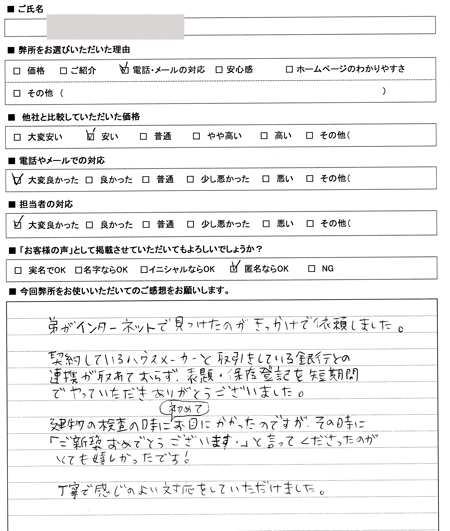 ■ ご氏名
■ 弊所をお選びいただいた理由
□ 価格 □ ご紹介 ☑ 電話・メールの対応 □ 安心感 □ ホームページのわかりやすさ
□ その他 ( )
■ 他社と比較していただいた価格
□ 大変安い ☑ 安い □ 普通 □ やや高い □ 高い □ その他(
■ 電話やメールでの対応
☑ 大変良かった □ 良かった □ 普通 □ 少し悪かった □ 悪い □ その他(
■ 担当者の対応
☑ 大変良かった □ 良かった □ 普通 □ 少し悪かった □ 悪い □ その他(
■ 「お客様の声」として掲載させていただいてもよろしいでしょうか?
□ 実名でOK □ 名字ならOK □ イニシャルならOK ☑ 匿名ならOK □ NG
■ 今回弊所をお使いいただいてのご感想をお願いします。
弟がインターネットで見つけたのがきっかけで依頼しました。
契約しているハウスメーカーと取引をしている銀行との
連携が取れておらず、表題・保存登記を短期間
でやっていただきありがとうございました。
建物の検査の時に初めてお目にかかったのですが、その時に
「ご新築おめでとうございます。」と言ってくださったのが
とても嬉しかったです!
丁寧で感じのよい対応をしていただけました。